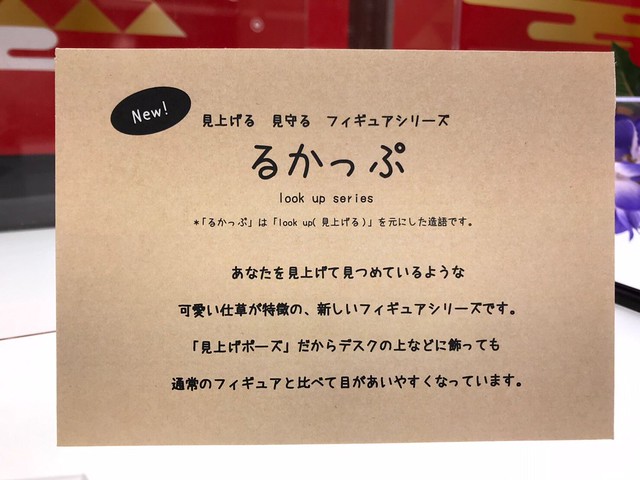 New!
見上げる 見守る フィギュアシリーズ
るかっぷ
look up series
*「るかっぷ」は「look up(見上げる)」を元にした造語です。
あなたを見上げて見つめているような
可愛い仕草が特徴の、新しいフィギュアシリーズです。
「見上げポーズ」だからデスクの上などに飾っても
通常のフィギュアと比べて目があいやすくなっています。